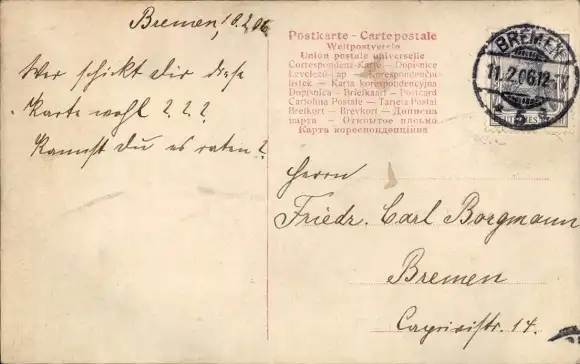 Bremen, 10.2.06
Wer schickt dir diese
Karte wohl ? ? ?
Kannst du es raten?
Postkarte - Carte postale
Weltpostverein
Union postale universelle
Correspondenz-Karte — Dopisnice
Levelező-lap — Korespondenční
lístek — Karta korespondencyjna
Dopisnica — Briefkaart — Postcard
Cartolina Postale — Tarjeta Postal
Brefkort — Brevkort — Дописна
карта — Открытое письмо
Карта кореспонденційна
BREMEN
11.2.06.12-
* 5
Herrn
Friedr. Carl Borgmann
Bremen
14.